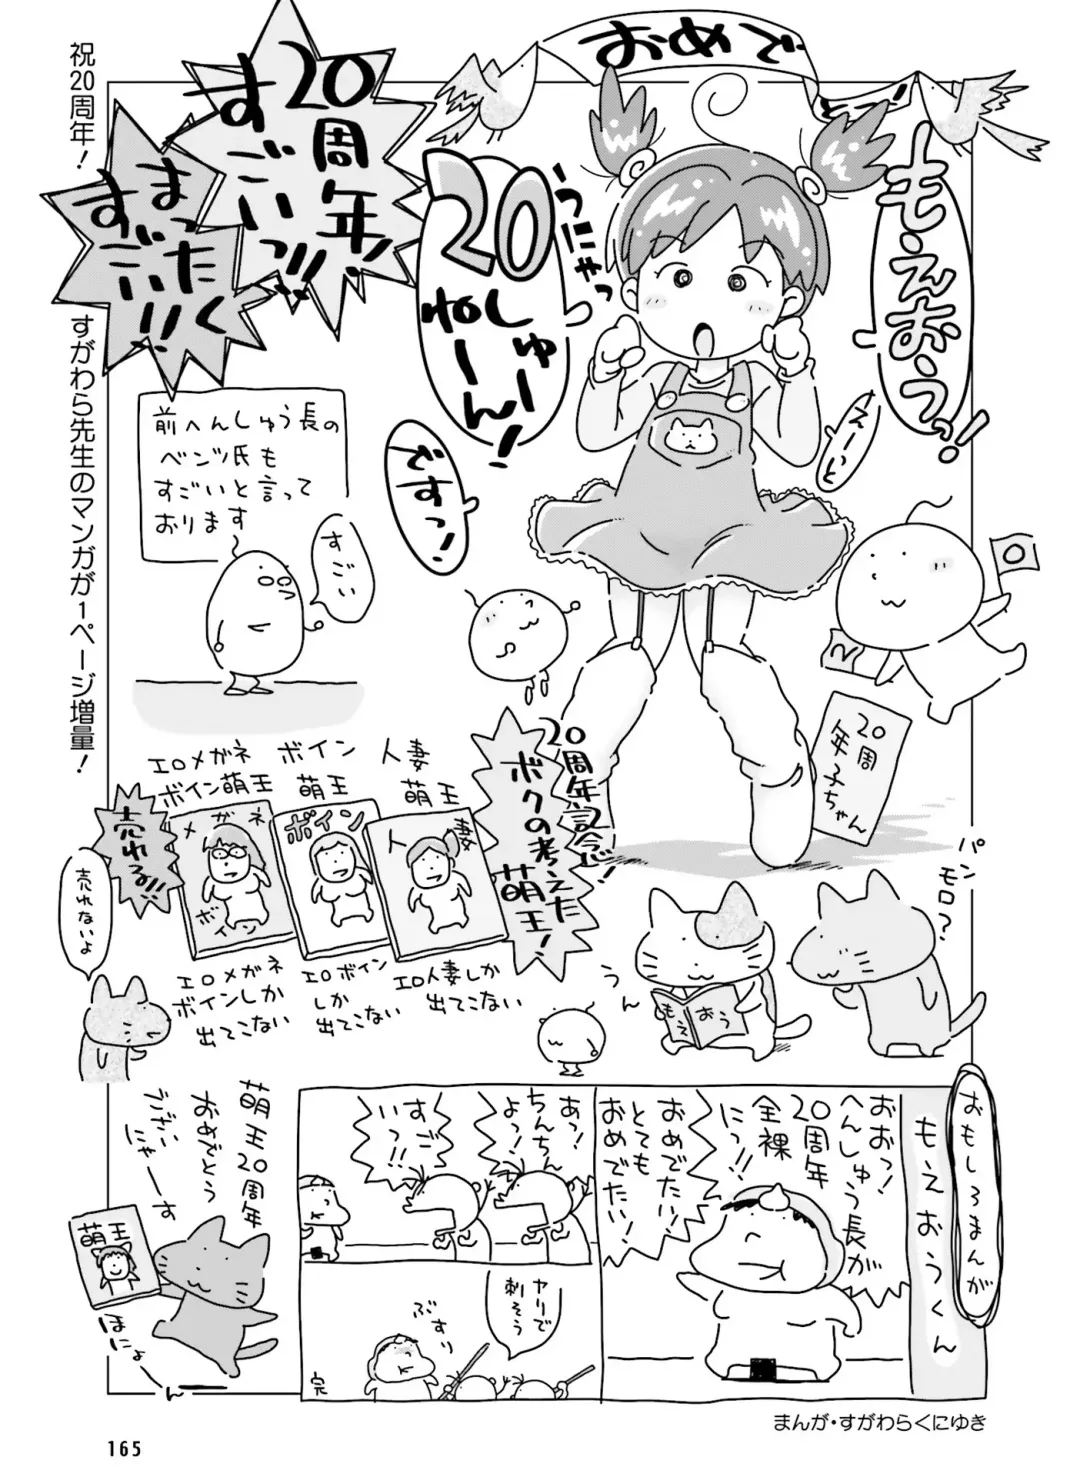 祝20周年! すがわら先生のマンガが1ページ増量!
おめで
とう!
20周年、
すごいっ!!
まったく
すごい!!
もえおうっ!
うにゃっ
20
しゅー
ねーん!
ですっ!
えーっと
前へんしゅう長の
ベンツ氏も
すごいと言って
おります
すごい
20周
年子ちゃん
20周年記念!
ボクの考えた
萌王!
人妻
萌王
人妻
エロ人妻しか
出てこない
ボイン
萌王
ボイン
エロボイン
しか
出てこない
エロメガネ
ボイン萌王
メガネ
ボイン
エロメガネ
ボインしか
出てこない
売れる!!
売れないよ
パン
モロ?
うん
もえ
おう
おもしろまんが
もえおうくん
おおっ!
へんしゅう長が
20周年
全裸
にっ!!
おめでたい!
とても
おめでたい!
あっ!
ちんち
よっ!
すご
いっ!!
ヤリで
刺そう
ぶすり
完
萌王20周年
おめでとう
ござい
にゃーす
萌王
ほにょーん
まんが・すがわらくにゆき
165